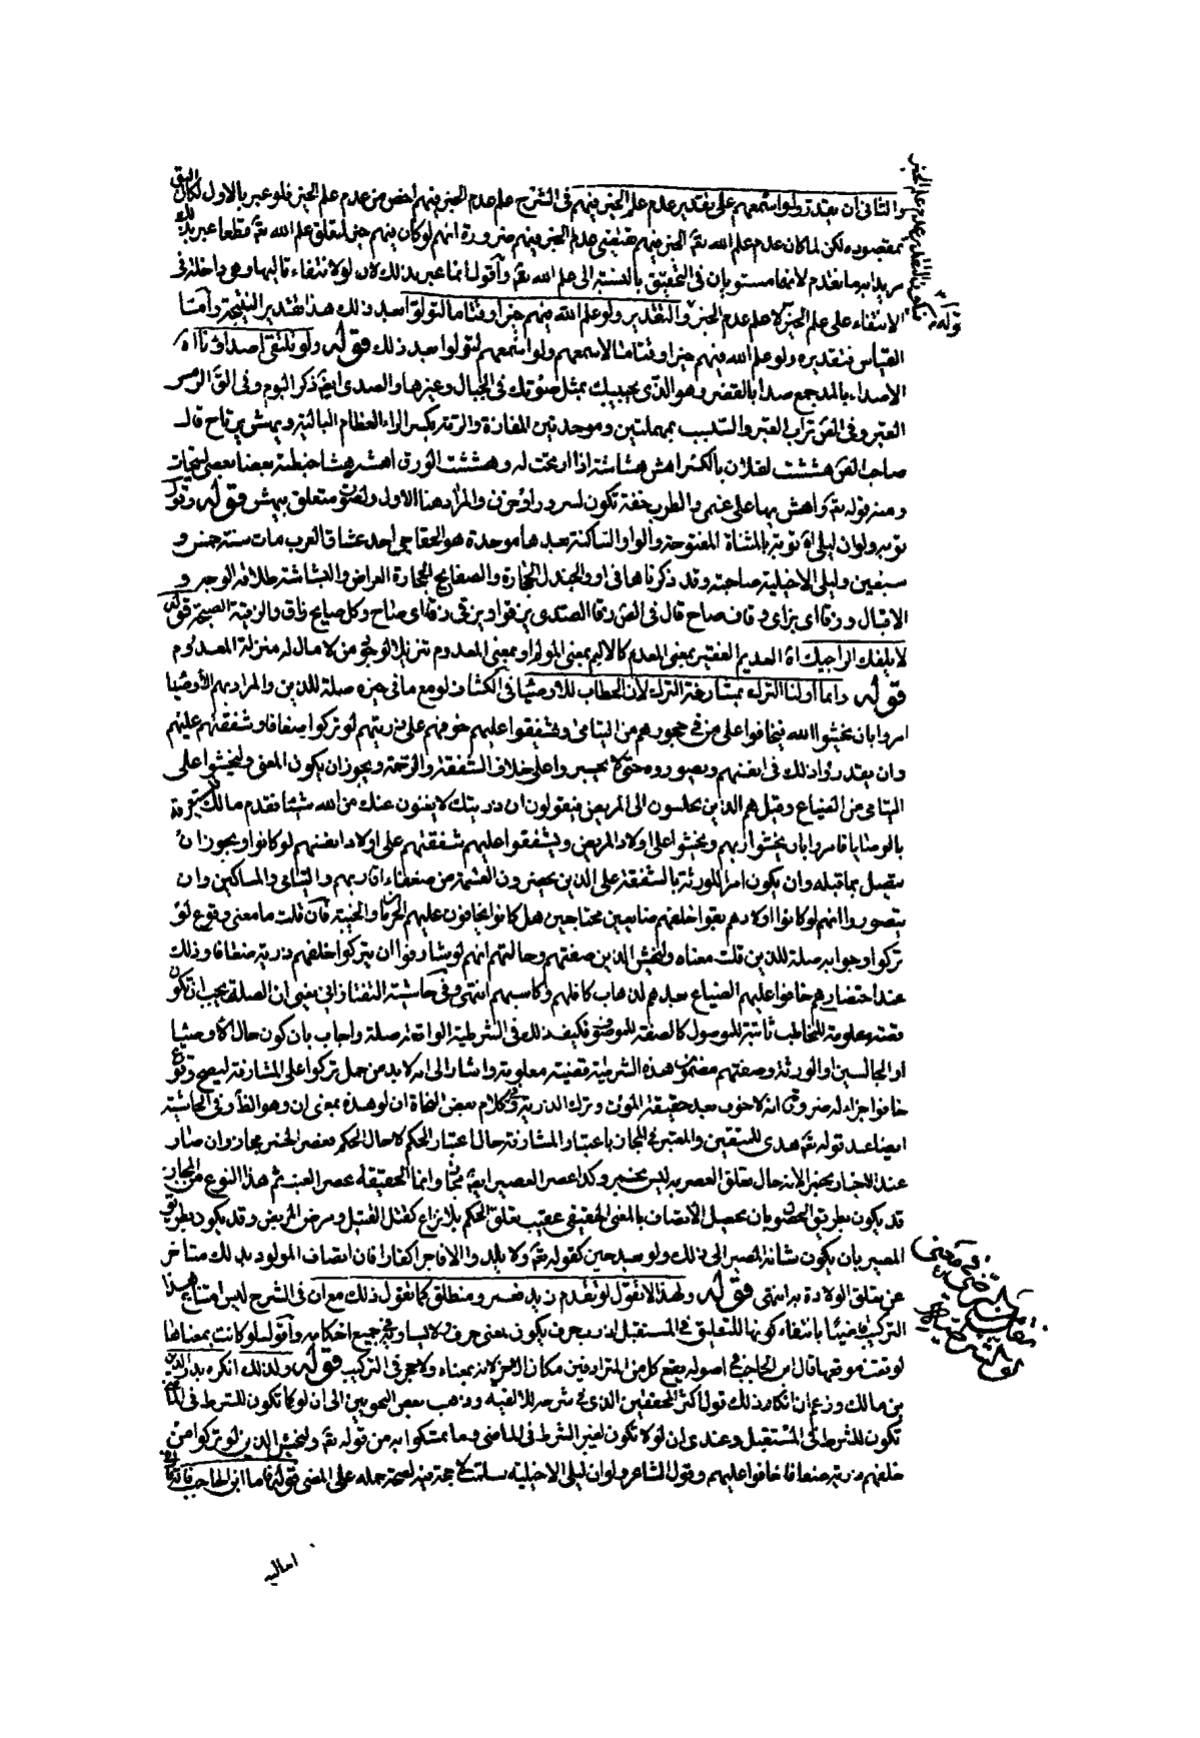 والثاني ان يقدر ولو اسمعهم على تقدير عدم علم الخير فيهم في الشرح علم عدم الخير فيهم اخص من عدم علم الخير فلو عبر بالاول لكان اليق
بمقصوده لكن لما كان عدم علم الله تع الخير فيهم يقتضي عدم الخير فيهم ضرورة انهم لو كان فيهم خير لتعلق علم الله تع قطعا عبر بذلك
مريدا به ما تقدم لانهما مستويان في التحقيق بالنسبة الى علم الله تع وأقول انما عبر بذلك لان لو لانتفاء تاليها وهي داخلة في
الانتفاء على علم الخير لا علم عدم الخير والتقدير ولو علم الله فيهم خيرا وقتا ما لتولوا بعد ذلك هذا تقدير النتيجة وأما
القياس فتقديره ولو علم الله فيهم خيرا وقتا ما لاسمعهم ولو اسمعهم لتولوا بعد ذلك قوله ولو تلتقي اصداؤنا اه
الاصداء بالمد جمع صدا بالقصر وهو الذي يجيبك بمثل صوتك في الجبال وغيرها والصدى ايضا ذكر البوم وفي الق الرمس
القبر وفي الق تراب القبر والسبسب بمهملتين وموحدتين المفازة والرمة بكسر الراء العظام البالية ويهش يرتاح قال
صاحب الق هششت لفلان بالكسر اهش هشاشة اذا ارتحت له وهششت الورق اهشه هشا خبطته بعصا ليتحات
ومنه قوله تع واهش بها على غنمي والطرب خفة تكون لسرور او حزن والمراد هنا الاول ولصوت متعلق بيهش قوله وقول
توبة ولو ان ليلى اه توبة بالمثناة المفتوحة والواو الساكنة بعدها موحدة هو الخفاجي احد عشاق العرب مات سنة خمس و
سبعين وليلى الاخيلية صاحبته وقد ذكرناها في او والجندل الحجارة والصفايح الحجارة العراض والبشاشة طلاقة الوجه و
الاقبال وزقا اي بزاي وقاف صاح قال في الص زقا الصدى يزقو ويزقي زقاء اي صاح وكل صايح زاق والزقية الصيحة قوله
لا يلفك الراجيك اه العديم الفقير بمعنى المعدم كالاليم بمعنى المولم او بمعنى المعدوم تنزيلا لوجود من لا مال له منزلة المعدوم
قوله وانما اولنا الترك بمشارفة الترك لان الخطاب للاوصيا في الكشاف لو مع ما في حيزه صلة للذين والمراد بهم الأوصيا
امروا بان يخشوا الله فيخافوا على من في حجورهم من اليتامى ويشفقوا عليهم خوفهم على ذريتهم لو تركوا ضعافا وشفقتهم عليهم
وان يقدروا ذلك في انفسهم ويصوروه حتى لا يجسروا على خلاف الشفقة والرحمة ويجوز ان يكون المعنى وليخشوا على
اليتامى من الضياع وقيل هم الذين يجلسون الى المريض فيقولون ان ذريتك لا يغنون عنك من الله شيئا فقدم مالك
بالوصايا فامروا بان يخشوا ربهم ويخشوا على اولاد المريض ويشفقوا عليهم شفقتهم على اولاد انفسهم لو كانوا ويجوز ان
يتصل بما قبله وان يكون امرا للورثة بالشفقة على الذين يحضرون القسمة من ضعفاء اقاربهم واليتامى والمساكين وان
يتصوروا انهم لو كانوا اولادهم بقوا خلفهم ضايعين محتاجين هل كانوا يخافون عليهم الحرمان والخيبة فان قلت ما معنى وقوع لو
تركوا وجوابه صلة للذين قلت معناه وليخش الذين صفتهم وحالتهم انهم لو شارفوا ان يتركوا خلفهم ذرية ضعافا وذلك
عند احتضارهم خافوا عليهم الضياع بعدهم لذهاب كافلهم وكاسبهم انتهى وفي حاشية التفتازاني يعني ان الصلة يجب ان تكون
قصة معلومة للمخاطب ثابتة للموصول كالصفة للموصوف فكيف ذلك في الشرطية الواقعة صلة واجاب بان كون حال الاوصيا
او الجالسين او الورثة وصفتهم مضمون هذه الشرطية قضية معلومة واشار الى انه لا بد من حمل تركوا على المشارفة ليصح وقوع
خافوا جزاء له ضرورة انه لا خوف بعد حقيقة الموت وترك الذرية وفي كلام بعض النحاة ان لو هذه بمعنى ان وهو الظ وفي الحاشية
ايضا عند قوله تع هدى للمتقين والمعتبر في المجاز باعتبار المشارفة حال اعتبار الحكم لا حال الحكم فعصر الخمر مجاز وان صار
عند الاخبار بخمر الا انه حال تعلق العصر به ليس بخمر وكذا عصر العصير ايضا مجاز وانما الحقيقة عصر العنب ثم هذا النوع من المجاز
قد يكون بطريق الحصول بان يحصل الاتصاف بالمعنى الحقيقي عقيب تعلق الحكم بلا تراخ كقتل القتيل ومرض المريض وقد يكون بطريق
المصير بان يكون شانه المصير الى ذلك ولو بعد حين كقوله تع ولا يلدوا الا فاجرا كفارا فان اتصاف المولود بذلك متأخر
عن تعلق الولادة به انتهى قوله ولهذا لا تقول لو تقدم زيد فسر ومنطلق كما تقول ذلك مع ان في الشرح ليس امتناع هذا
التركيب مغنيا بانتفاء كونها للتعليق في المستقبل اذ رب حرف يكون بمعنى حرف ولا يساويه في جميع احكامه وأقول لو كانت بمعناها
لوقعت موقعها قال ابن الحاجب في اصوله يقع كل من المترادفين مكان الاخر لانه بمعناه ولا حجر في التركيب قوله ولذلك انكره بدر الدين
بن مالك وزعم ان انكار ذلك قول اكثر المحققين الذي في شرحه للالفية وذهب بعض النحويين الى ان لو كما تكون للشرط في الماضي
تكون للشرط في المستقبل وعندي ان لو لا تكون لغير الشرط في الماضي وما تمسكوا به من قوله تع وليخش الذين لو تركوا من
خلفهم ذرية ضعافا خافوا عليهم وقول الشاعر ولو ان ليلى الاخيلية سلمت لا حجة فيه لصحة حمله على المضي قوله فاما ابن الحاجب فانه قال
اماليه